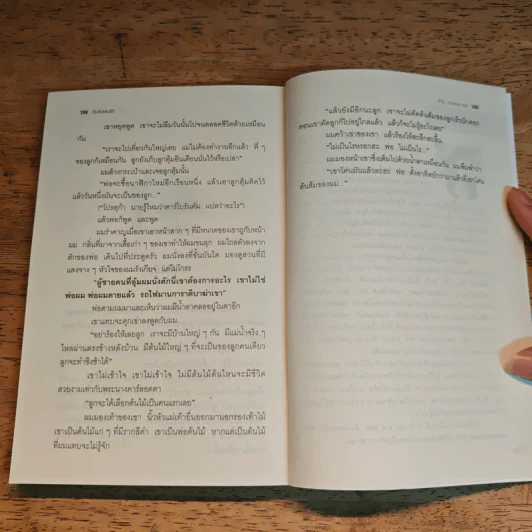 188
เขาหยุดพูด เขาจะไม่ลืมวันนั้นไปจนตลอดชีวิตด้วยเหมือน
กัน
"เราจะไปเที่ยวกันใหญ่เลย แม่ไม่ต้องทำงานอีกแล้ว พี่ ๆ
ของลูกก็เหมือนกัน ลูกยังเก็บลูกตุ้มอินเดียนนั่นไว้หรือเปล่า"
ผมล้วงกระเป๋าและเจอลูกตุ้มนั้น
"พ่อจะซื้อนาฬิกาใหม่อีกเรือนหนึ่ง แล้วเอาลูกตุ้มติดไว้
แล้ววันหนึ่งมันจะเป็นของลูก..."
("โปรตุก้า นายรู้ไหมว่าคาร์โบรันดัม แปลว่าอะไร")
แล้วพ่อก็พูด และพูด
ผมรำคาญเมื่อเขาเอาหน้าสาก ๆ ที่มีหนวดของเขาถูกับหน้า
ผม กลิ่นที่มาจากเสื้อเก่า ๆ ของเขาทำให้ผมขนลุก ผมไถลตัวลงจาก
ตักของพ่อ เดินไปที่ประตูครัว ผมนั่งลงที่ขั้นบันได มองดูสวนที่มี
แสงจาง ๆ หัวใจของผมรังเกียจ แต่ไม่โกรธ
"ผู้ชายคนที่อุ้มผมนั่งตักนี่เขาต้องการอะไร เขาไม่ใช่
พ่อผม พ่อผมตายแล้ว รถไฟมันการาติบาฆ่าเขา"
พ่อตามผมมาและเห็นว่าผมมีน้ำตาคลออยู่ในตาอีก
เขาแทบจะคุกเข่าลงพูดกับผม
"อย่าร้องไห้เลยลูก เราจะมีบ้านใหญ่ ๆ กัน มีแม่น้ำจริง ๆ
ไหลผ่านตรงข้างหลังบ้าน มีต้นไม้ใหญ่ ๆ ที่จะเป็นของลูกคนเดียว
ลูกจะทำชิงช้าได้"
เขาไม่เข้าใจ เขาไม่เข้าใจ ไม่มีต้นไม้ต้นไหนจะมีชีวิต
สวยงามเท่ากับพระนางคาร์ลอตตา
"ลูกจะได้เลือกต้นไม้เป็นคนแรกเลย"
ผมมองเท้าของเขา นิ้วหัวแม่เท้ายื่นออกมานอกรองเท้าไม้
เขาเป็นต้นไม้แก่ ๆ ที่มีรากสีดำ เขาเป็นพ่อต้นไม้ หากแต่เป็นต้นไม้
ที่ผมแทบจะไม่รู้จัก
"แล้วยังมีอีกนะลูก เขาจะไม่ตัดต้นส้มของลูกเร็วนักดอก
ตอนเขาตัดลูกก็ไปอยู่ไกลแล้ว แล้วก็จะไม่รู้อะไรเลย"
ผมคว้าเข่าของเขา แล้วร้องไห้สะอึกสะอื้น
"ไม่เป็นไรหรอกฮะ พ่อ ไม่เป็นไร..."
ผมมองหน้าเขาซึ่งเต็มไปด้วยน้ำตาเหมือนกัน ผมพึมพำว่า
"เขาโค่นมันแล้วละฮะ พ่อ ตั้งอาทิตย์กว่ามาแล้วที่เขาโค่น
ต้นส้มของผม..."